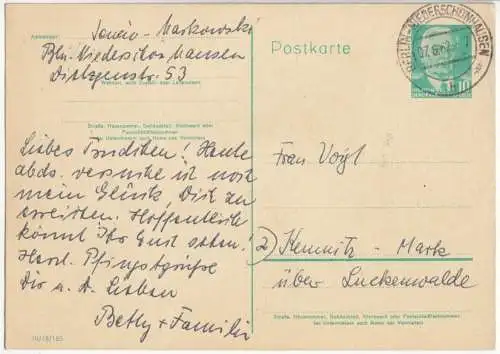 Absender:
Janéio-Markowski
Bln.-Niederschönhausen
Dietzgenstr. 53
Wohnort, auch Zustell- oder Leitpostamt
Straße, Hausnummer, Gebäudeteil, Stockwerk oder
Postschließfachnummer
bei Untermietern auch Name des Vermieters
Postkarte
BERLIN-NIEDERSCHÖNHAUSEN
10
Liebes Trudchen! Heute
abds. versuche ich noch
mein Glück, Dich zu
erreichen. Hoffentlich
könnt Ihr Euch sehen!
Herzl. Pfingstgrüße
Dir u. d. Lieben
Betly + Familie
Frau Voigt
2) Kemnitz-Mark
über Luckenwalde
Straße, Hausnummer, Gebäudeteil, Stockwerk oder Postschließfachnummer
bei Untermietern auch Name des Vermieters
III/18/185